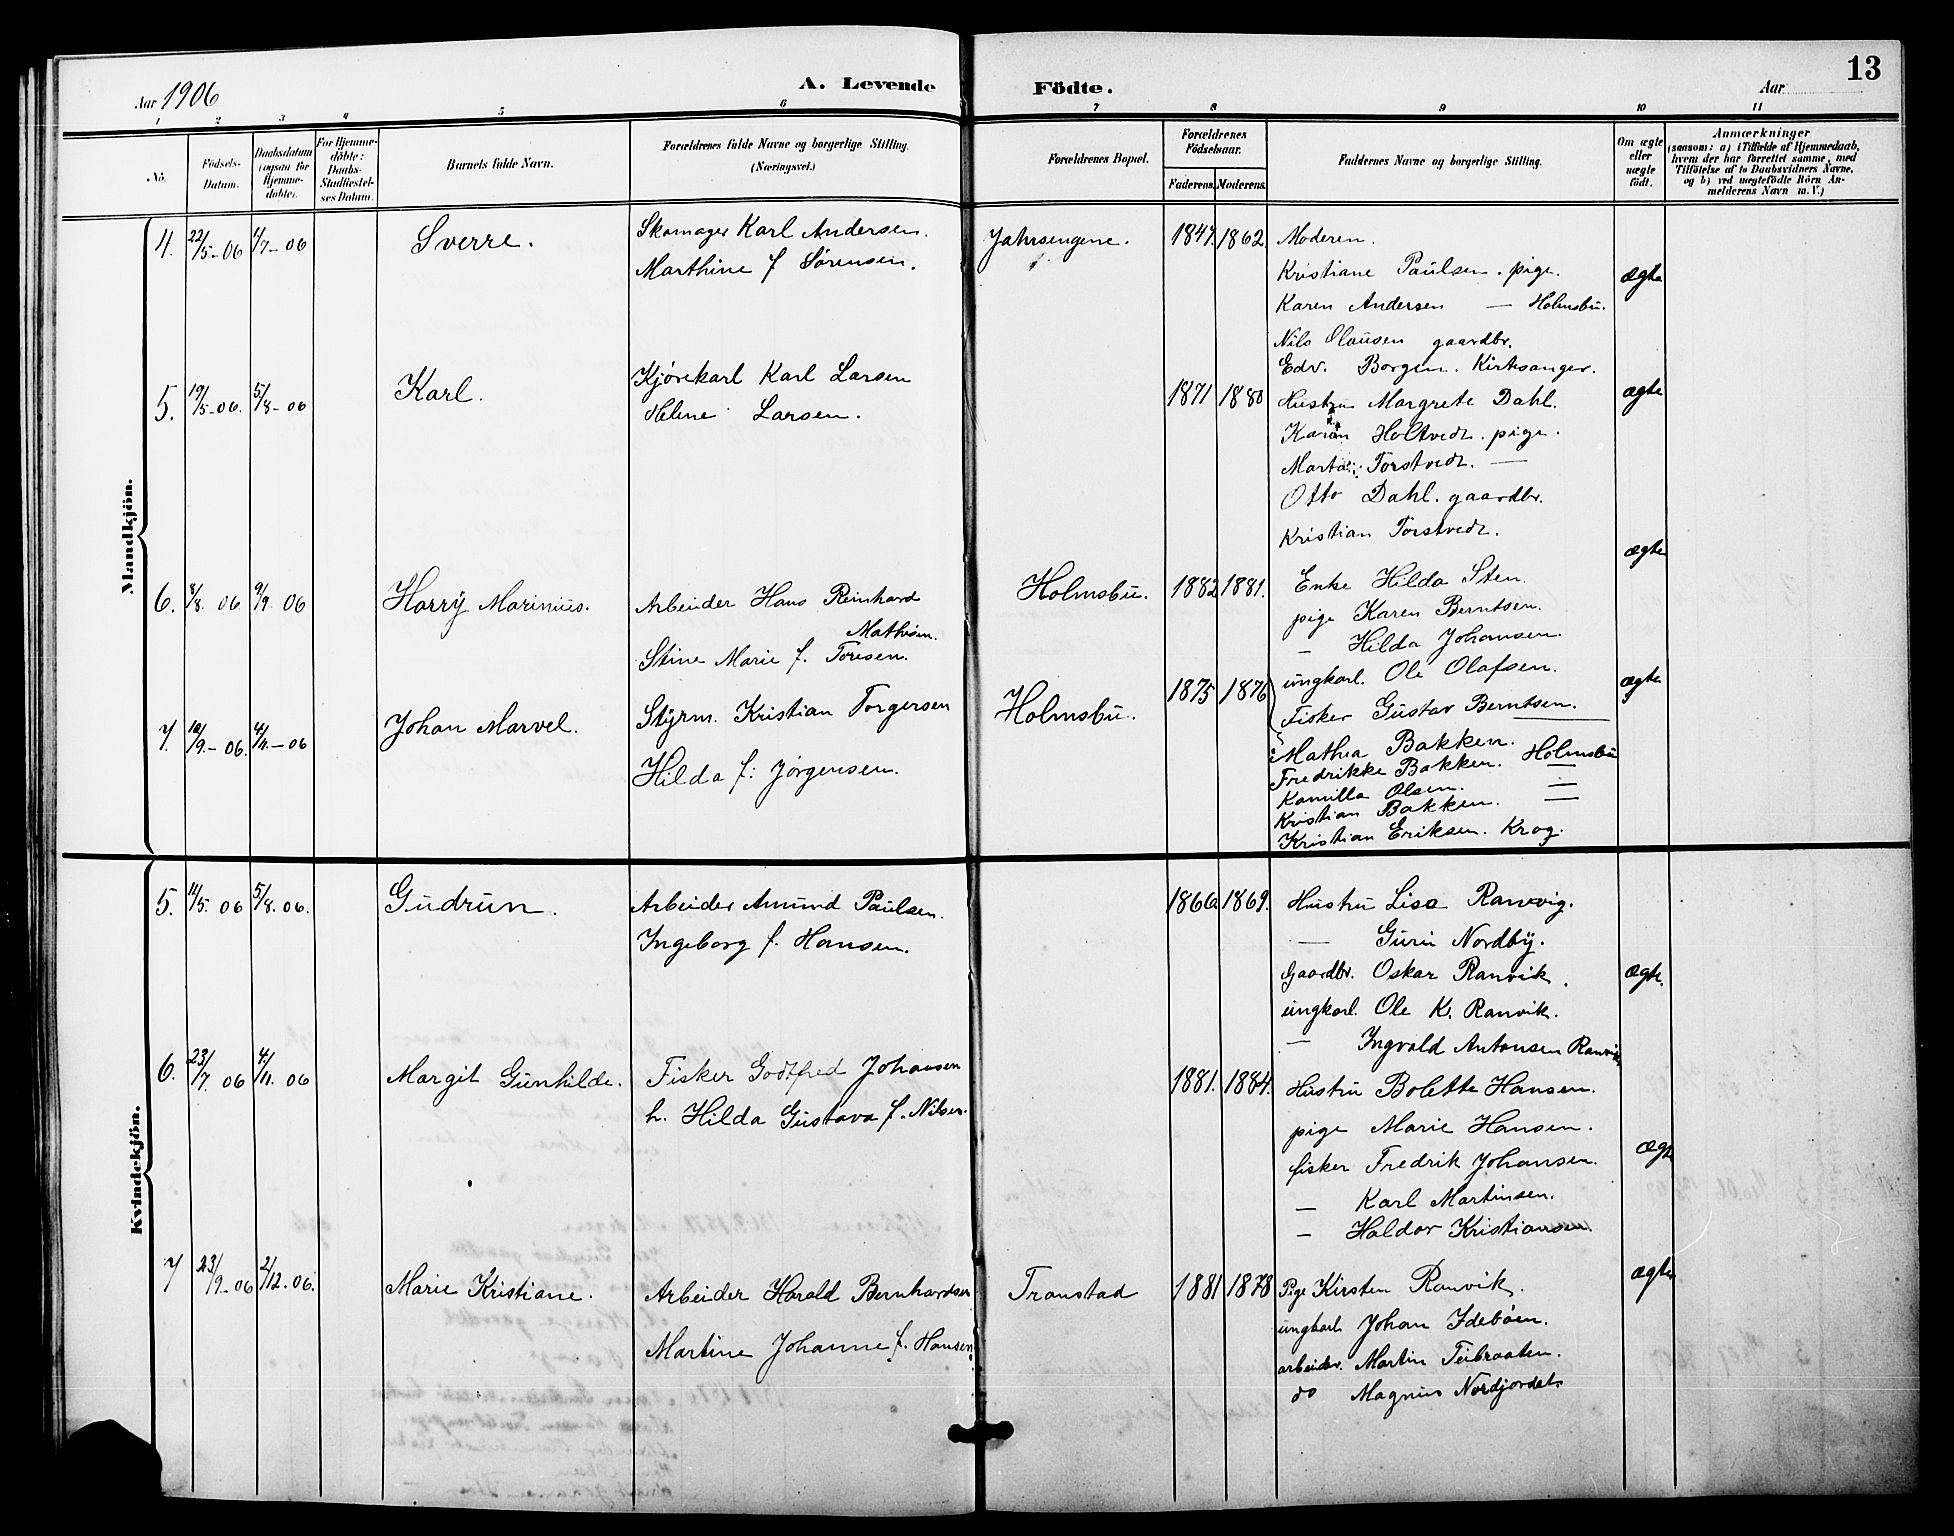 13
Aar 1906 A. Levende Födte. Aar
1 2 3 4 5 6 7 8 9 10 11
No. Födsels-Datum. Daabsdatum (ogsaa for Hjemme-döbte). For Hjemme-döbte: Daabs-Stadfæstel-ses Datum. Barnets fulde Navn. Forældrenes fulde Navne og borgerlige Stilling. (Næringsvei.) Forældrenes Bopæl. Forældrenes Födselsaar. Faderens. Moderens. Faddernes Navne og borgerlige Stilling. Om ægte eller uægte födt. Anmærkninger (saasom: a) i Tilfælde af Hjemmedaab, hvem der har forrettet samme, med Tilföielse af to Daabsvidners Navne, og b) ved uægtefödte Börn An-melderens Navn m. V.)
Mandkjön.
4. 22/5-06 1/7-06 Sverre. Skomager Karl Andersen. Jahrsengene. 1847. 1862. Moderen.
Marthine f Sørensen. Kristiane Paulsen. pige. ægte
Karen Andersen — Holmsbu.
Nils Olausen gaardbr.
Edv. Borgen. Kirksanger.
5. 19/5-06. 5/8-06 Karl. Kjørekarl Karl Larsen 1871 1880 Hustru Margrete Dahl. ægte
Helene Larsen. Karen Holtvedt. pige.
Marta Torstvedt. —
Otto Dahl. gaardbr.
Kristian Torstvedt.
6. 8/8. 06. 9/9. 06 Harry Marinius. Arbeider Hans Reinhard Holmsbu. 1882 1881. Enke Hilda Sten. ægte
Mathisen. pige Karen Berntsen.
Stine Marie f. Toresen. — Hilda Johansen.
ungkarl. Ole Olafsen.
Fisker Gustav Berntsen.
7. 10/9.-06. 4/11.-06 Johan Marvel. Styrm. Kristian Torgersen Holmsbu. 1875 1876 Mathea Bakken. Holmsbu ægte
Hilda f. Jørgensen. Fredrikke Bakken. —
Kamilla Olsen. —
Kristian Bakken. —
Kristian Eriksen. Krog.
Kvindekjön.
5. 11/5. 06 5/8. 06. Gudrun. Arbeider Amund Paulsen. 1866 1869. Hustru Lisa Ranvig.
Ingeborg f. Hansen. — Guri Nordby.
Gaardbr. Oskar Ranvik. ægte.
ungkarl. Ole K. Ranvik.
— Ingvald Antonsen Ranvik
6. 23/7. 06 4/11. 06 Margit Gunhilde. Fisker Godtfred Johansen 1881. 1884. Hustru Bolette Hansen.
h. Hilda Gustava f. Nilsen. pige Marie Hansen.
fisker Fredrik Johansen. ægte
— Karl Martinsen.
— Haldor Kristiansen.
7 23/9-06 2/12.-06. Marie Kristiane. Arbeider Harald Bernhardsen Tronstad 1881 1878 Pige Kirsten Ranvik. ægte
Martine Johanne f. Hansen. ungkarl Johan Idebøen.
arbeider. Martin Teibraaten.
do Magnus Nordjordet.